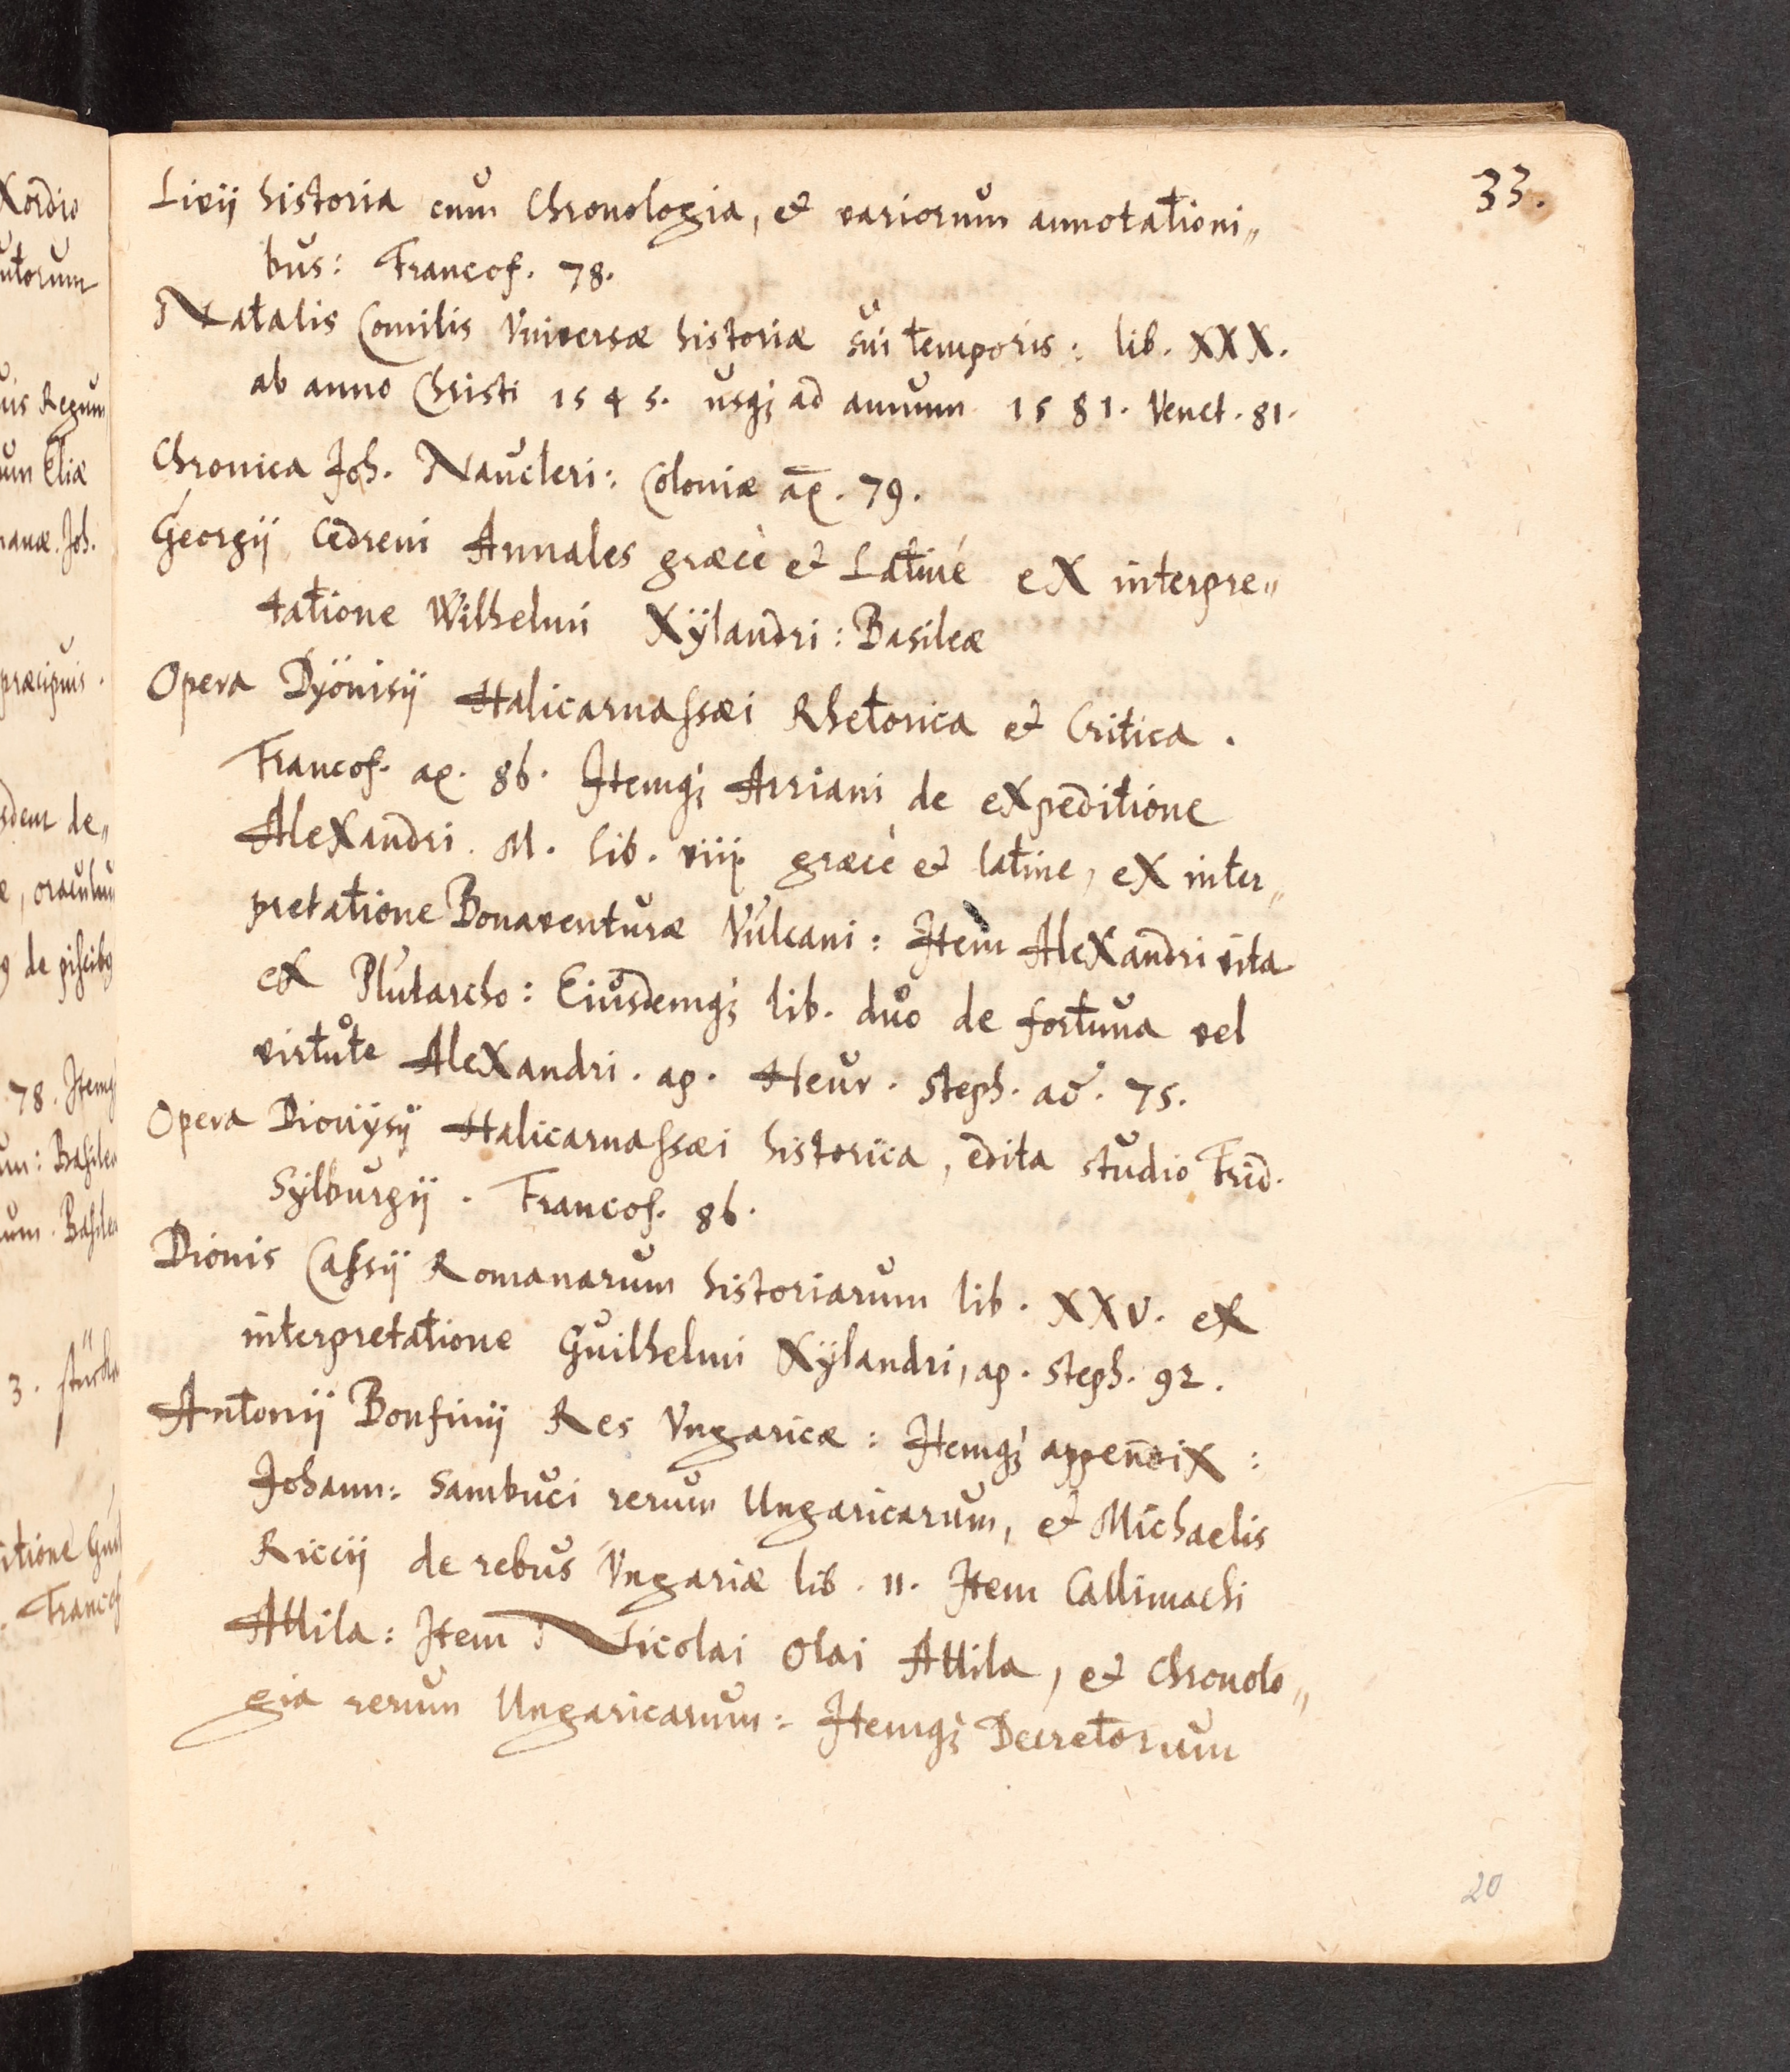 33.
Livij historia cum Chronologia, et variorum annotationi„
bus: Francof. 78.
Natalis Comitis Universæ historiæ sui temporis: lib. XXX.
ab anno Christi 1545. usq; ad annum 1581. Venet. 81.
Chronica Joh. Naucleri: Coloniæ 79.
Georgij Cedreni Annales græcè et Latinè eX interpre„
tatione Wilhelmi Xÿlandri: Basileæ
Opera Dÿonisij Halicarnassæi Rhetorica et Critica.
Francof. 86. Itemq; Arriani de eXpeditione
AleXandri. M. lib. viij. græcè et latine, eX inter„
pretatione Bonaventuræ Vulcani: Item AleXandri vita
eX Plutarcho: Eiusdemq; lib. duo de fortuna vel
virtute AleXandri. ap. Henr. Steph. 75.
Opera Dionÿsij Halicarnassæi historica, edita studio Frid.
Sÿlburgij. Francof. 86.
Dionis Cassij Romanarum historiarum lib. XXV. eX
interpretatione Guilhelmi Xÿlandri, ap. Steph. 92.
Antonij Bonfinij Res Vngaricæ: Itemq; appendiX:
Johann: Sambuci rerum Ungaricarum, et Michaelis
Riccij de rebus Vngariæ lib. II. Item Callimachi
Attila: Item Nicolai Olai Attila, et Chronolo„
gia rerum Ungaricarum: Itemq; Decretorum
20